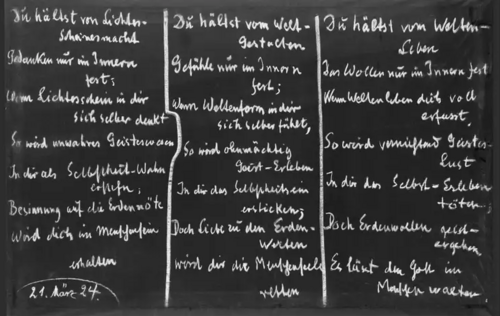 Du hältst von Lichtes-
Scheinesmacht
Gedanken nur im Innern
fest;
Wenn Lichtesschein in dir
sich selber denkt
So wird unwahres Geisteswesen
In dir als Selbstheit-Wahn
erstehn;
Besinnung auf die Erdennöte
Wird dich im Menschsein
erhalten
21. März 24.
Du hältst vom Welt-
Gestalten
Gefühle nur im Innern
fest;
Wenn Weltenform in dir
sich selber fühlt,
So wird ohnmächtig
Geist-Erleben
In dir das Selbstheitsein
ersticken;
Doch Liebe zu den Erden-
Werten
wird dir die Menschenseele
retten
Du hältst vom Welten-
Leben
Das Wollen nur im Innern fest
Wenn Weltenleben dich voll
erfasst,
So wird vernichtend Geistes-
lust
In dir das Selbst-Erleben
töten;
Doch Erdenwollen geist-
ergeben
Es lässt den Gott im
Menschen walten